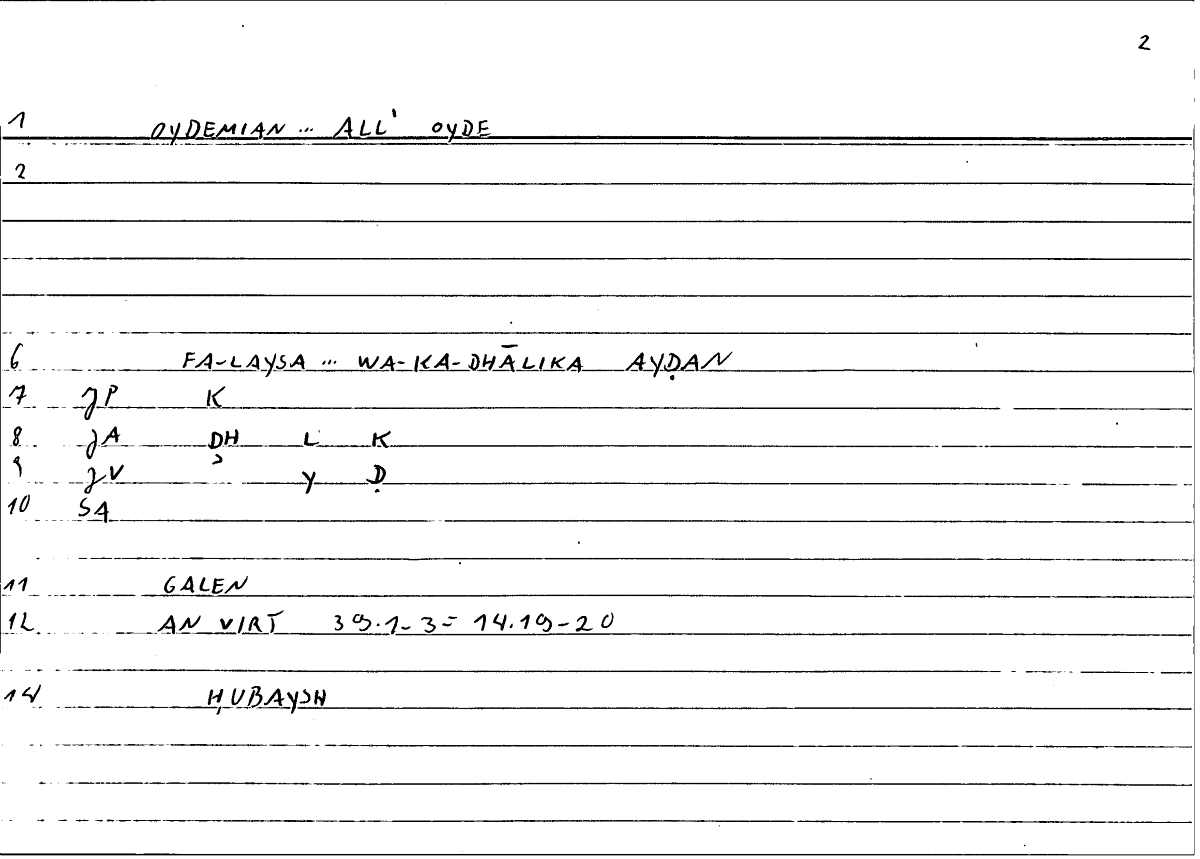 2
1 OYDEMIAN ... ALL' OYDE
2
6 FA-LAYSA ... WA-KA-DHĀLIKA AYḌAN
7 JP K
8 JA DH L K
9 JV > Y Ḍ
10 SA
11 GALEN
12 AN VIRT 39.1-3 = 14.19-20
14 ḤUBAYSH